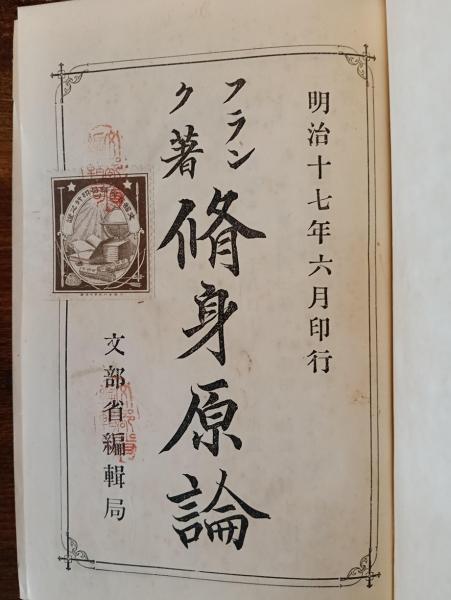 明治十七年六月印行
フランク著
脩身原論
文部省編輯局